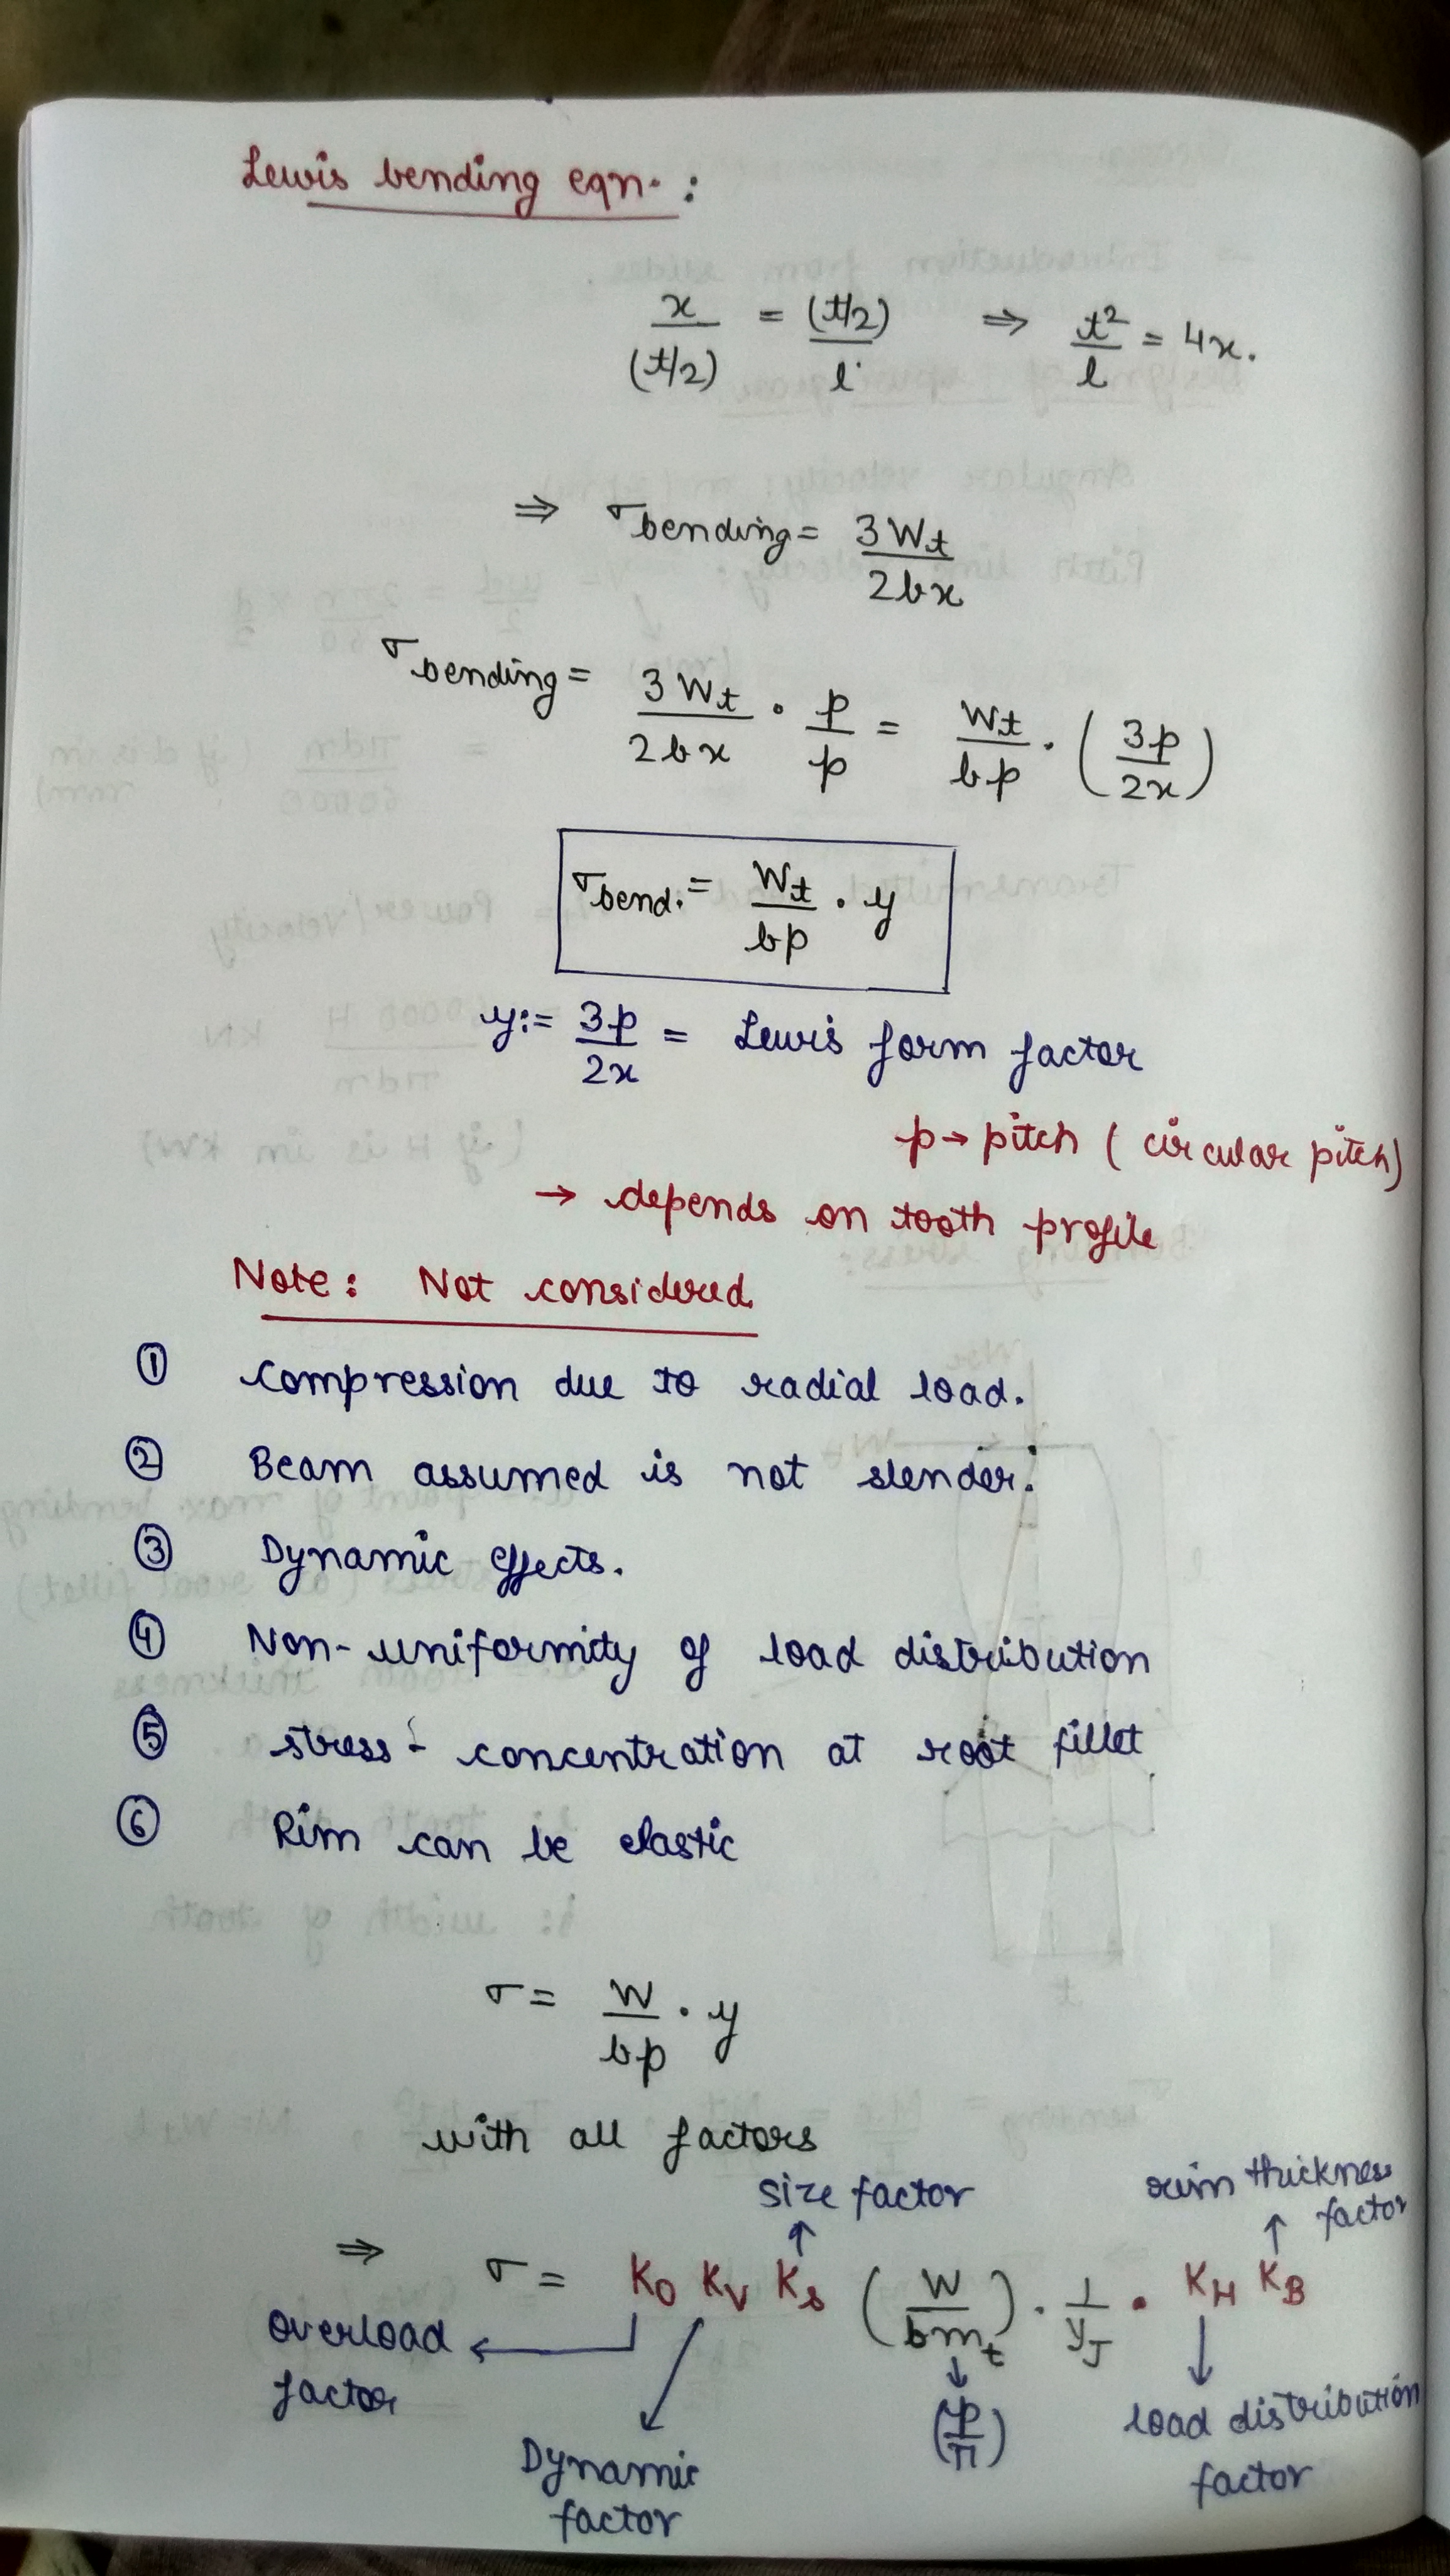 Lewis bending eqn. :
x/(t/2) = (t/2)/l ⇒ t²/l = 4x.
⇒ σbending = 3Wt/2bx
σbending = 3Wt/2bx · p/p = Wt/bp · (3p/2x)
σbend. = Wt/bp · y
y := 3p/2x = Lewis form factor
p → pitch (circular pitch)
→ depends on tooth profile
Note : Not considered
① Compression due to radial load.
② Beam assumed is not slender.
③ Dynamic effects.
④ Non-uniformity of load distribution
⑤ stress - concentration at root fillet
⑥ Rim can be elastic
σ = W/bp · y
with all factors
size factor
rim thickness
factor
⇒ σ = KO KV Ks (W/bmt) · 1/yJ · KH KB
overload
factor
(p/π)
load distribution
factor
Dynamic
factor